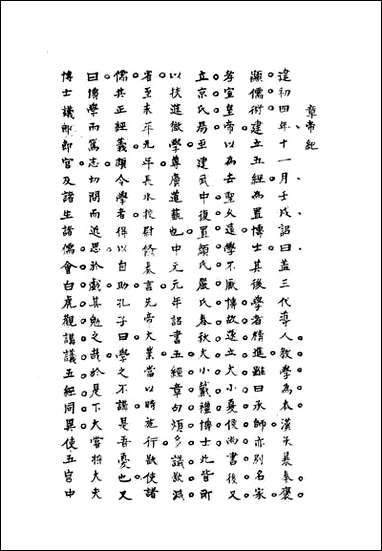 章帝紀
建初四年十一月壬戌詔曰蓋三代導人教學為本漢承暴秦褒
顯儒術建立五經為置博士其後學者精進雖曰承師亦別名家
孝宣皇帝以為去聖久遠學不厭博故遂立大小夏侯尚書後又
立京氏易至建武中復置顏氏嚴氏春秋大小戴禮博士此皆所
以扶進微學尊廣道藝也中元元年詔書五經章句煩多議欲減
省至永平元年長水校尉鯈奏言先帝大業當以時施行欲使諸
儒共正經義頗令學者得以自助孔子曰學之不講是吾憂也又
曰博學而篤志切問而近思於戲其勉之哉於是下太常將大夫
博士議郎郎官及諸生諸儒會白虎觀講議五經同異使五官中